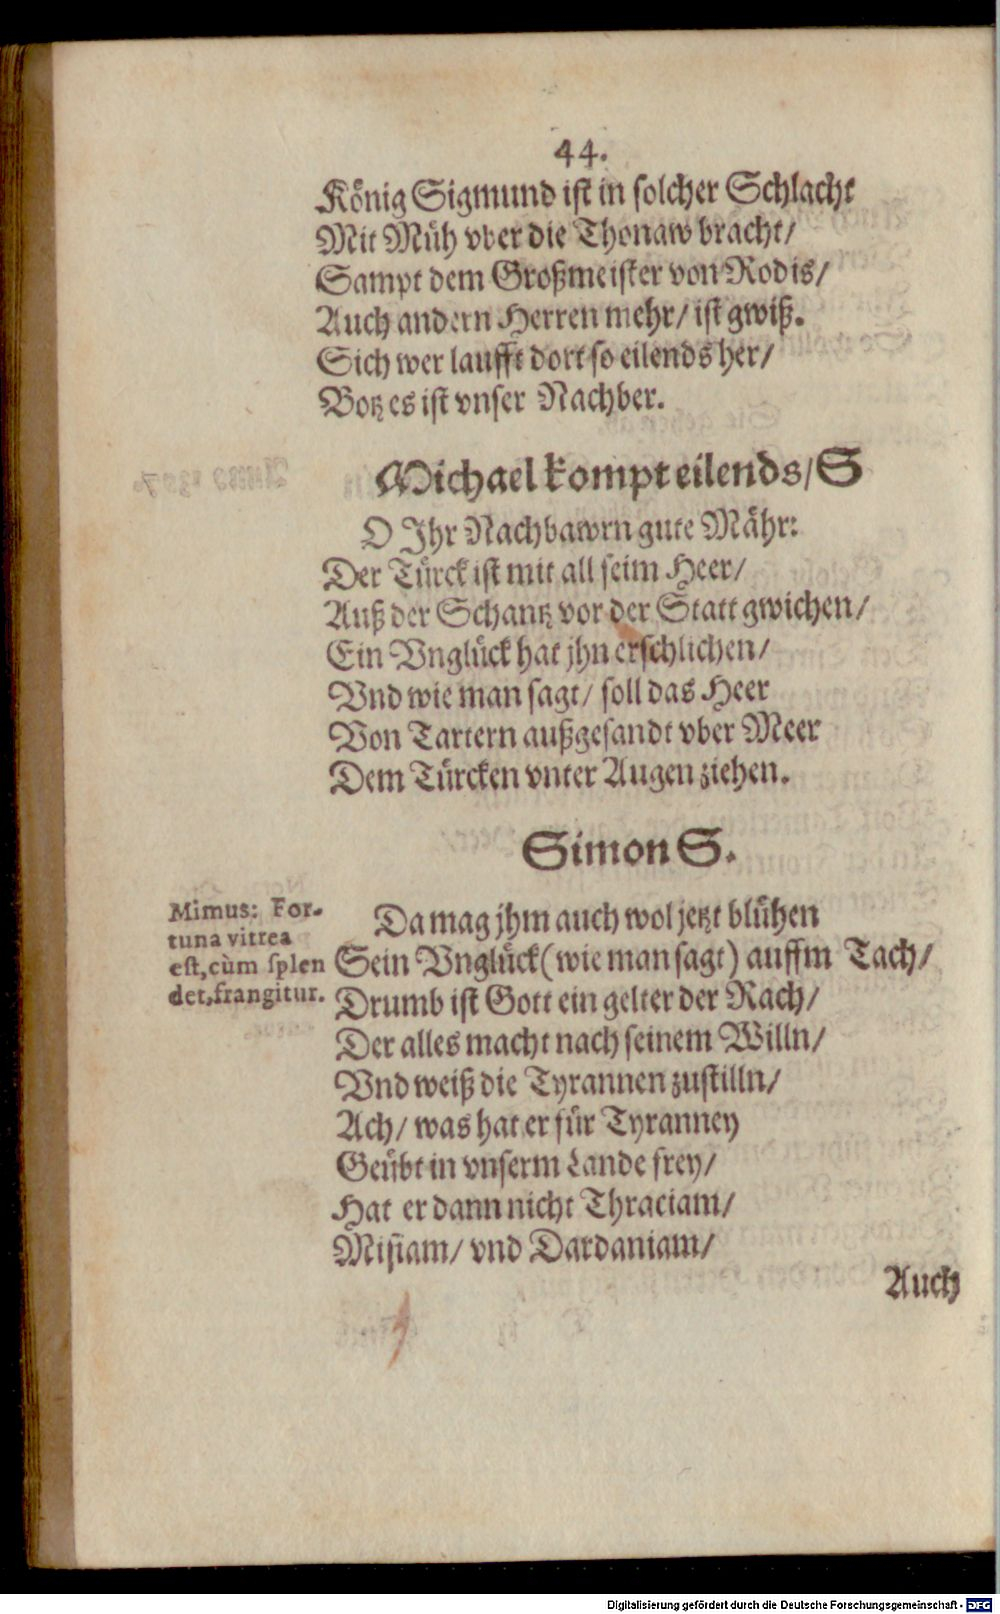 44.
König Sigmund ist in solcher Schlacht
Mit Müh vber die Thonaw bracht/
Sampt dem Großmeister von Rodis/
Auch andern Herren mehr/ ist gwiß.
Sich wer laufft dort so eilends her/
Botz es ist vnser Nachber.
Michael kompt eilends/ S
O Ihr Nachbawrn gute Mähr:
Der Türck ist mit all seim Heer/
Auß der Schantz vor der Statt gwichen/
Ein Vnglück hat jhn erschlichen/
Vnd wie man sagt/ soll das Heer
Von Tartern außgesandt vber Meer
Dem Türcken vnter Augen ziehen.
Simon S.
Mimus: For-
tuna vitrea
est, cùm splen
det, frangitur.
Da mag jhm auch wol jetzt blühen
Sein Vnglück (wie man sagt) auffm Tach/
Drumb ist Gott ein gelter der Rach/
Der alles macht nach seinem Willn/
Vnd weiß die Tyrannen zustilln/
Ach/ was hat er für Tyranney
Geübt in vnserm Lande frey/
Hat er dann nicht Thraciam/
Misiam/ vnd Dardaniam/
Auch
Digitalisierung gefördert durch die Deutsche Forschungsgemeinschaft - DFG